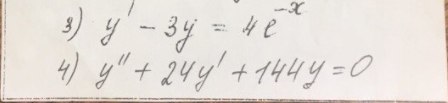 3) y' - 3y = 4e^{-x}
4) y'' + 24y' + 144y = 0